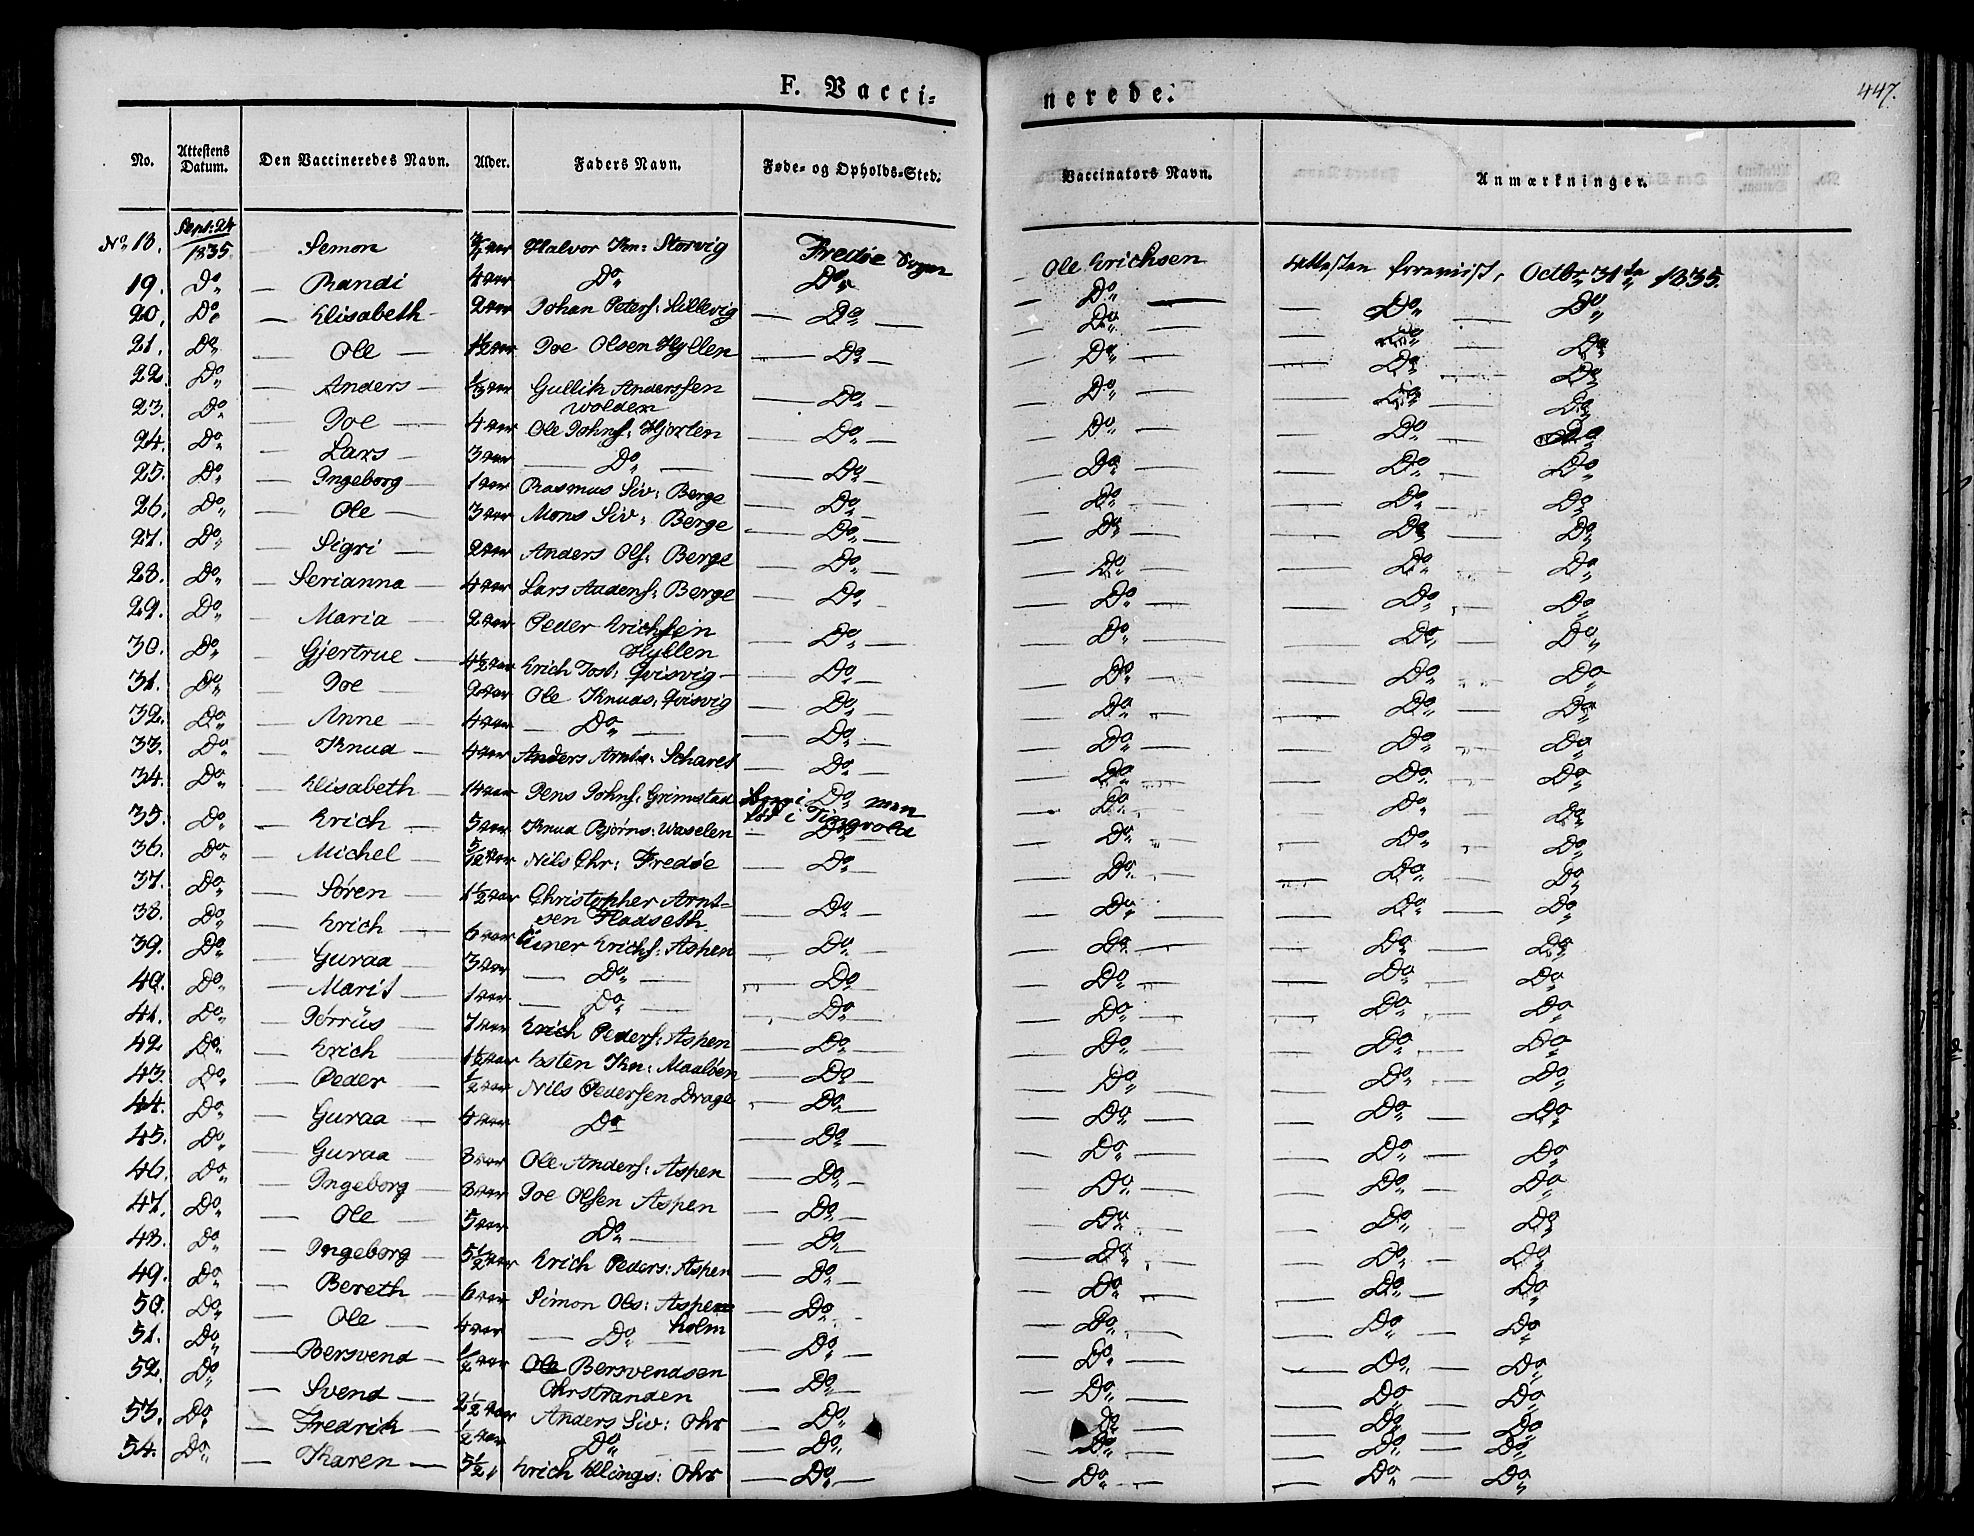 F. Vacci-
nerede.
447.
No.
Attestens Datum.
Den Vaccineredes Navn.
Alder.
Faders Navn.
Føde- og Opholds-Sted.
Vaccinators Navn.
Anmærkninger.
No 18. Sept: 24 1835 — Semon Halvor Kn: Storvig Fredøe Sogn — Ole Erichsen Attesten foreviist, Octbr 31te 1835.
19. Do — Randi 4 aar Do Do — Do — — Do Do
20. Do — Elisabeth 2 aar Johan Peters: Lillevig — Do — — Do — — Do — Do
21. Do — Ole — 1½ aar Joe Olsen Hyllen — Do — — Do — — Do — Do
22. Do — Anders — Gullik Anderssen Wolden — Do — — Do — — Do — Do
23. Do — Joe — 4 aar Ole Johns: Hjorten — Do — — Do — — Do — Do
24. Do — Lars — 3 aar — Do — — Do — — Do — — Do — Do
25. Do — Ingeborg — 1 aar Rasmus Siv: Berge — Do — — Do — — Do — Do
26. Do — Ole — 3 aar Mons Siv: Berge — Do — — Do — — Do — Do
27. Do — Sigri — 2 aar Anders Ols: Berge — Do — — Do — — Do — Do
28. Do — Serianna — 4 aar Lars Anders: Berge — Do — — Do — — Do — Do
29. Do — Maria — 2 aar Peder Erichsen Hyllen — Do — — Do — — Do — Do
30. Do — Gjertrue — 4½ aar Erich Tost: Qvisvig — Do — — Do — — Do — Do
31. Do — Joe — 2 aar Ole Knuds: Qvisvig — Do — — Do — — Do — Do
32. Do — Anne — 4 aar — Do — — Do — — Do — — Do — Do
33. Do — Knud — 4 aar Anders Arnts: Scharet — Do — — Do — — Do — Do
34. Do — Elisabeth — 14 aar Jens Johns: Grimstad Do men fød i Tingvold — Do — — Do — Do
35. Do — Erich — 5 aar Knud Bjørns: Waselen — Do — Do — — Do — Do
36. Do — Michel — 5/12 aar Nils Chr: Fredøe — Do — — Do — — Do — Do
37. Do — Søren — 1½ aar Christopher Arnt- sen Fladseth — Do — — Do — — Do — Do
38. Do — Erich — 6 aar Einer Erichs: Aspen — Do — — Do — — Do — Do
39. Do — Guraa — 3 aar — Do — — Do — — Do — — Do — Do
40. Do — Marit — 1 aar — Do — — Do — — Do — — Do — Do
41. Do — — 7 aar Erich Peders: Aspen — Do — — Do — — Do — Do
42 Do — Erich — 1½ aar Esten Kn: Maaløen — Do — — Do — — Do — Do
43. Do — Peder — ½ aar Nils Pedersen Drage — Do — — Do — — Do — Do
44. Do — Guraa — 4 aar Do — Do — — Do — — Do — Do
45. Do — Guraa — 8 aar Ole Anders: Aspen — Do — — Do — — Do — Do
46. Do — Ingeborg — 8 aar Joe Olsen Aspen — Do — — Do — — Do — Do
47. Do — Ole — 5 aar Do — — Do — — Do — — Do — Do
48. Do — Ingeborg — 5½ aar Erich Peders: Aspen — Do — — Do — — Do — Do
49. Do — Bereth — 6 aar Simon Ols: Aspen holm — Do — — Do — — Do — Do
50. Do — Ole — 4 aar — Do — Do — — Do — — Do — Do
51. Do — Bersvend — ½ aar Ole Bersvendsen Ohrstranden — Do — — Do — — Do — Do
52. Do — Svend — 2½ aar Anders Siv: Ohr — Do — — Do — — Do — Do
53. Do — Fredrik — ½ aar Do — — Do — — Do — — Do — Do
54. Do — Karen — 5½ Erich Ellings: Ohr — Do — — Do — — Do — Do